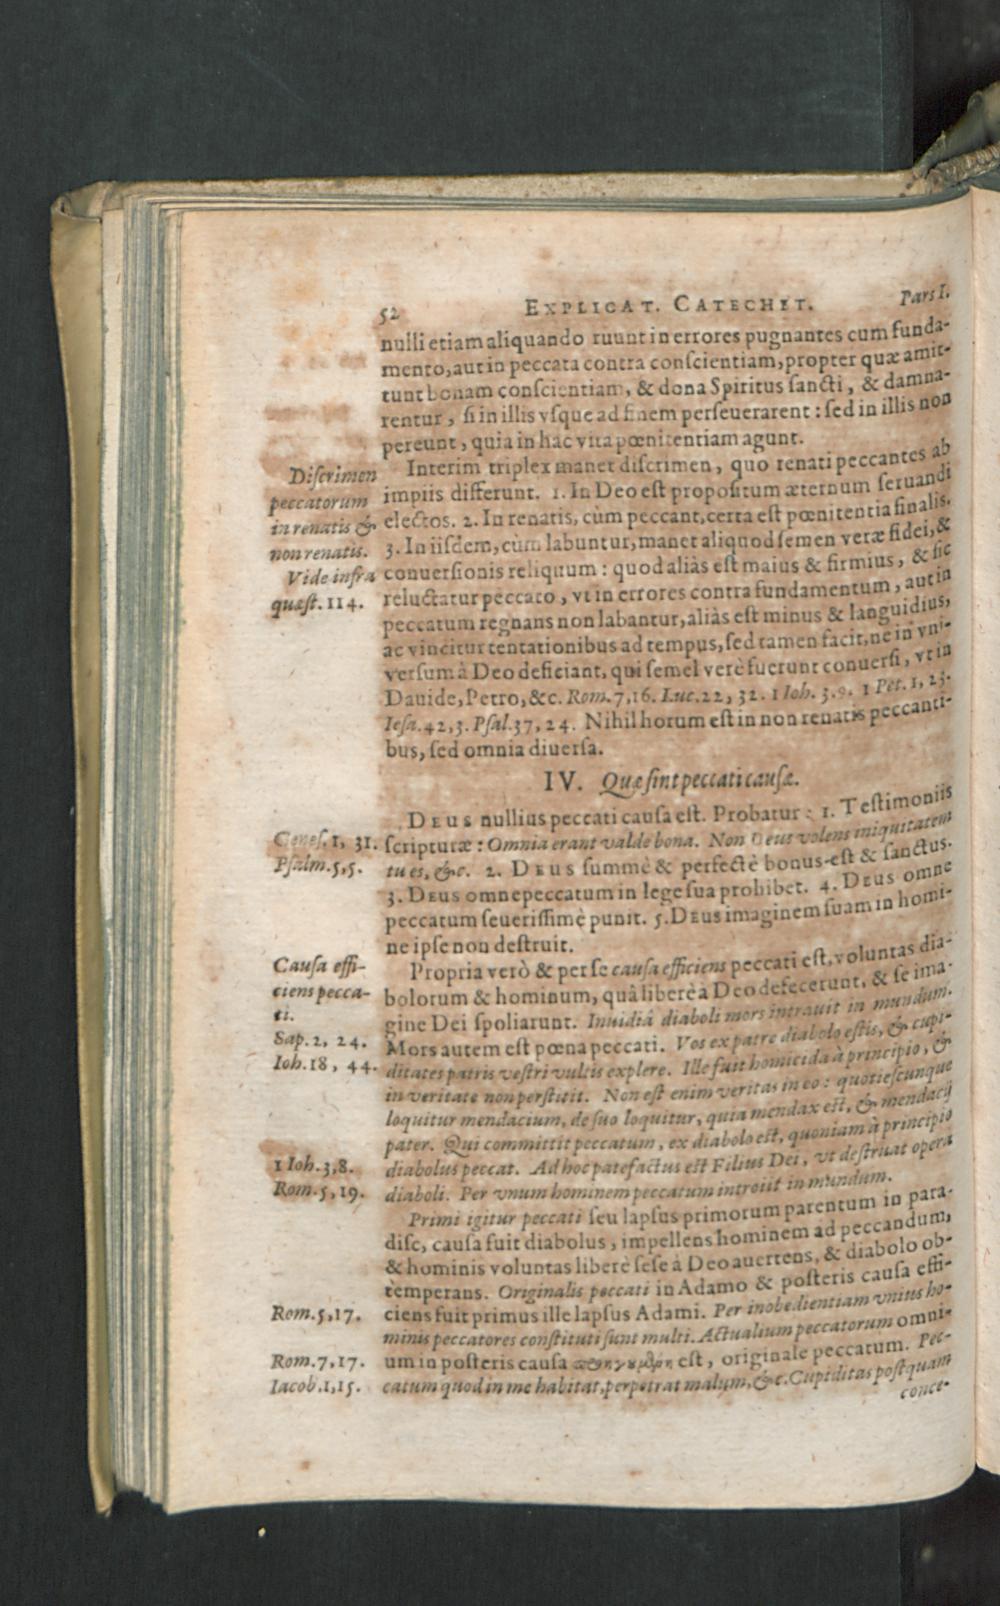 52 EXPLICAT. CATECHET. Pars I.
nulli etiam aliquando ruunt in errores pugnantes cum funda-
mento, aut in peccata contra conscientiam, propter quæ amit-
tunt bonam conscientiam, & dona Spiritus sancti, & damna-
rentur, si in illis vsque ad finem perseuerarent: sed in illis non
pereunt, quia in hac vita pœnitentiam agunt.
Discrimen
peccatorum
in renatis &
non renatis.
Vide infra
quæst. 114.
Interim triplex manet discrimen, quo renati peccantes ab
impiis differunt. 1. In Deo est propositum æternum seruandi
electos. 2. In renatis, cùm peccant, certa est pœnitentia finalis.
3. In iisdem, cùm labuntur, manet aliquod semen veræ fidei, &
conuersionis reliquum: quod aliàs est maius & firmius, & sic
reluctatur peccato, vt in errores contra fundamentum, aut in
peccatum regnans non labantur, aliàs est minus & languidius,
ac vincitur tentationibus ad tempus, sed tamen facit, ne in vni-
versum à Deo deficiant, qui semel verè fuerunt conuersi, vt in
Dauide, Petro, &c. Rom. 7, 16. Luc. 22, 32. 1 Ioh. 3. 9. 1 Pet. 1, 23.
Iesa. 42, 3. Psal. 37, 24. Nihil horum est in non renatis peccanti-
bus, sed omnia diuersa.
IV. Quæ sint peccati causæ.
Genes. 1, 31.
Psalm. 5, 5.
DEUS nullius peccati causa est. Probatur: 1. Testimoniis
scripturæ: Omnia erant valde bona. Non Deus volens iniquitatem
tu es, &c. 2. DEUS summè & perfectè bonus est & sanctus.
3. DEUS omne peccatum in lege sua prohibet. 4. DEUS omne
peccatum seuerissimè punit. 5. DEUS imaginem suam in homi-
ne ipse non destruit.
Causa effi-
ciens pecca-
ti.
Sap. 2, 24.
Ioh. 18, 44.
1 Ioh. 3, 8.
Rom. 5, 19.
Propria verò & per se causa efficiens peccati est, voluntas dia-
bolorum & hominum, quâ liberè à Deo defecerunt, & se ima-
gine Dei spoliarunt. Inuidiâ diaboli mors intrauit in mundum.
Mors autem est pœna peccati. Vos ex patre diabolo estis, & cupi-
ditates patris vestri vultis explere. Ille fuit homicida à principio, &
in veritate non perstitit. Non est enim veritas in eo: quotiescunque
loquitur mendacium, de suo loquitur, quia mendax est, & mendacij
pater. Qui committit peccatum, ex diabolo est, quoniam à principio
diabolus peccat. Ad hoc patefactus est Filius Dei, vt destruat opera
diaboli. Per vnum hominem peccatum introiit in mundum.
Primi igitur peccati seu lapsus primorum parentum in para-
diso, causa fuit diabolus, impellens hominem ad peccandum,
& hominis voluntas liberè sese à Deo auertens, & diabolo ob-
temperans. Originalis peccati in Adamo & posteris causa effi-
Rom. 5, 17.
Rom. 7, 17.
Iacob. 1, 15.
ciens fuit primus ille lapsus Adami. Per inobedientiam vnius ho-
minis peccatores constituti sunt multi. Actualium peccatorum omni-
um in posteris causa est, originale peccatum. Pec-
catum quod in me habitat, perpetrat malum, &c. Cupiditas postquam
conce-